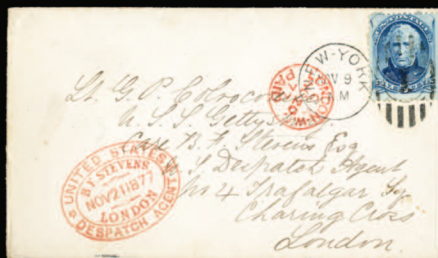 NEW-YORK
NOV 9
M
LONDON-W
PAID
Lt. G. P. Colvocoresses
U. S. S. Gettysburg
Care B. F. Stevens Esq
U. S. Despatch Agent
No 4 Trafalgar Sq
Charing Cross
London.
UNITED STATES
B.F. STEVENS
NOV 21 1877
LONDON
DESPATCH AGENT